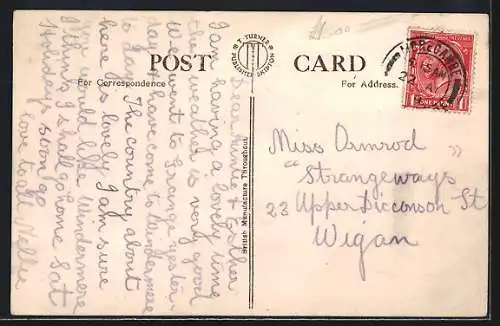 POST CARD
T. TURNER
PUBLISHER SKIPTON
For Correspondence
For Address.
British Manufacture Throughout
Dear Auntie & Esther
I am having a lovely time
the weather is very good
We went to Grange yester-
day & have come to Windermere
to day. The country about
here is lovely I am sure
you would like Windermere
I think I shall go home Sat
Holidays soon go
love to all Nellie
MORECAMBE
22
ONE PENNY
Miss Ormrod
"Strangeways"
23 Upper Dicconson St
Wigan